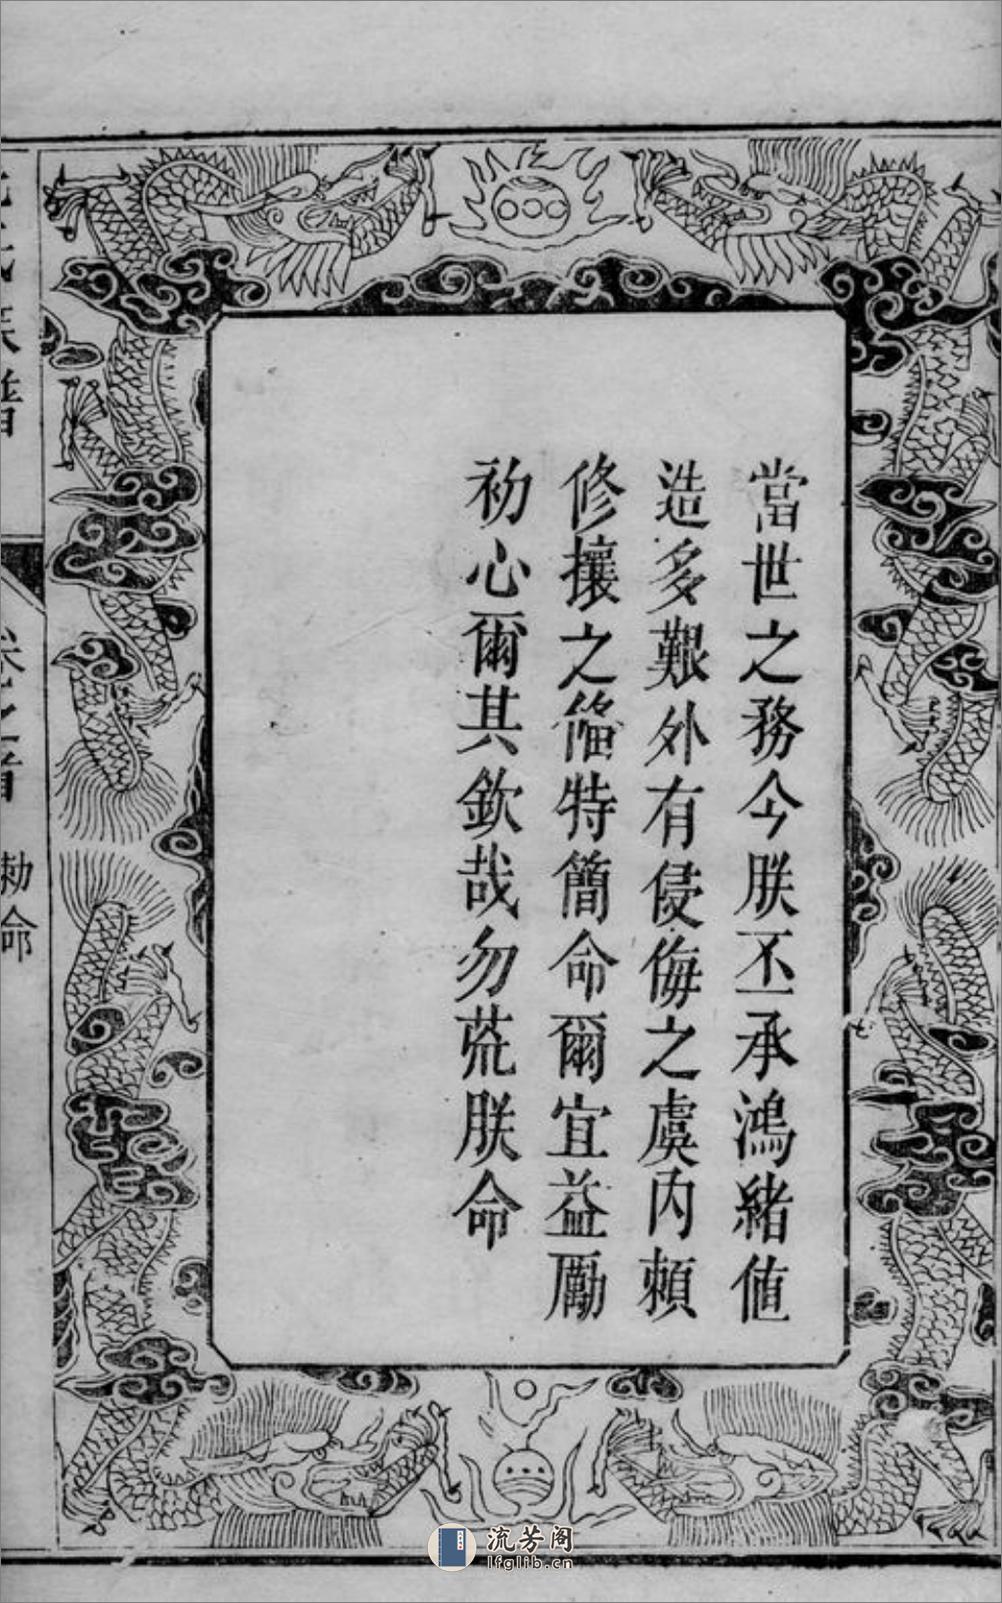 當世之務今朕丕承鴻緒值
造多艱外有侵侮之虞內賴
修攘之俻特簡命爾宜益勵
初心爾其欽哉勿荒朕命
氏族譜
卷之首
勅命
流芳阁
lfglib.cn